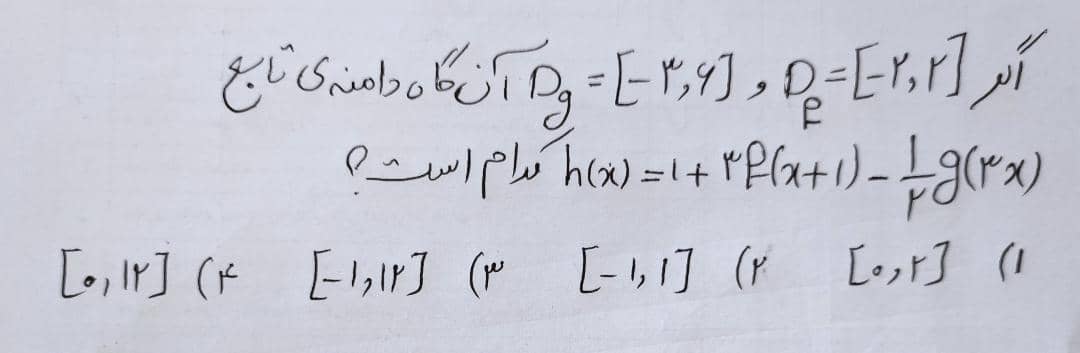 اگر D_f=[-۲,۲] و D_g=[-۳,۶] آن گاه دامنه ی تابع
h(x)=1+۳f(x+1)-\frac{1}{۲}g(۳x) کدام است؟
۱) [۰,۲]  ۲) [-۱,۱]  ۳) [-۱,۱۲]  ۴) [۰,۱۲]